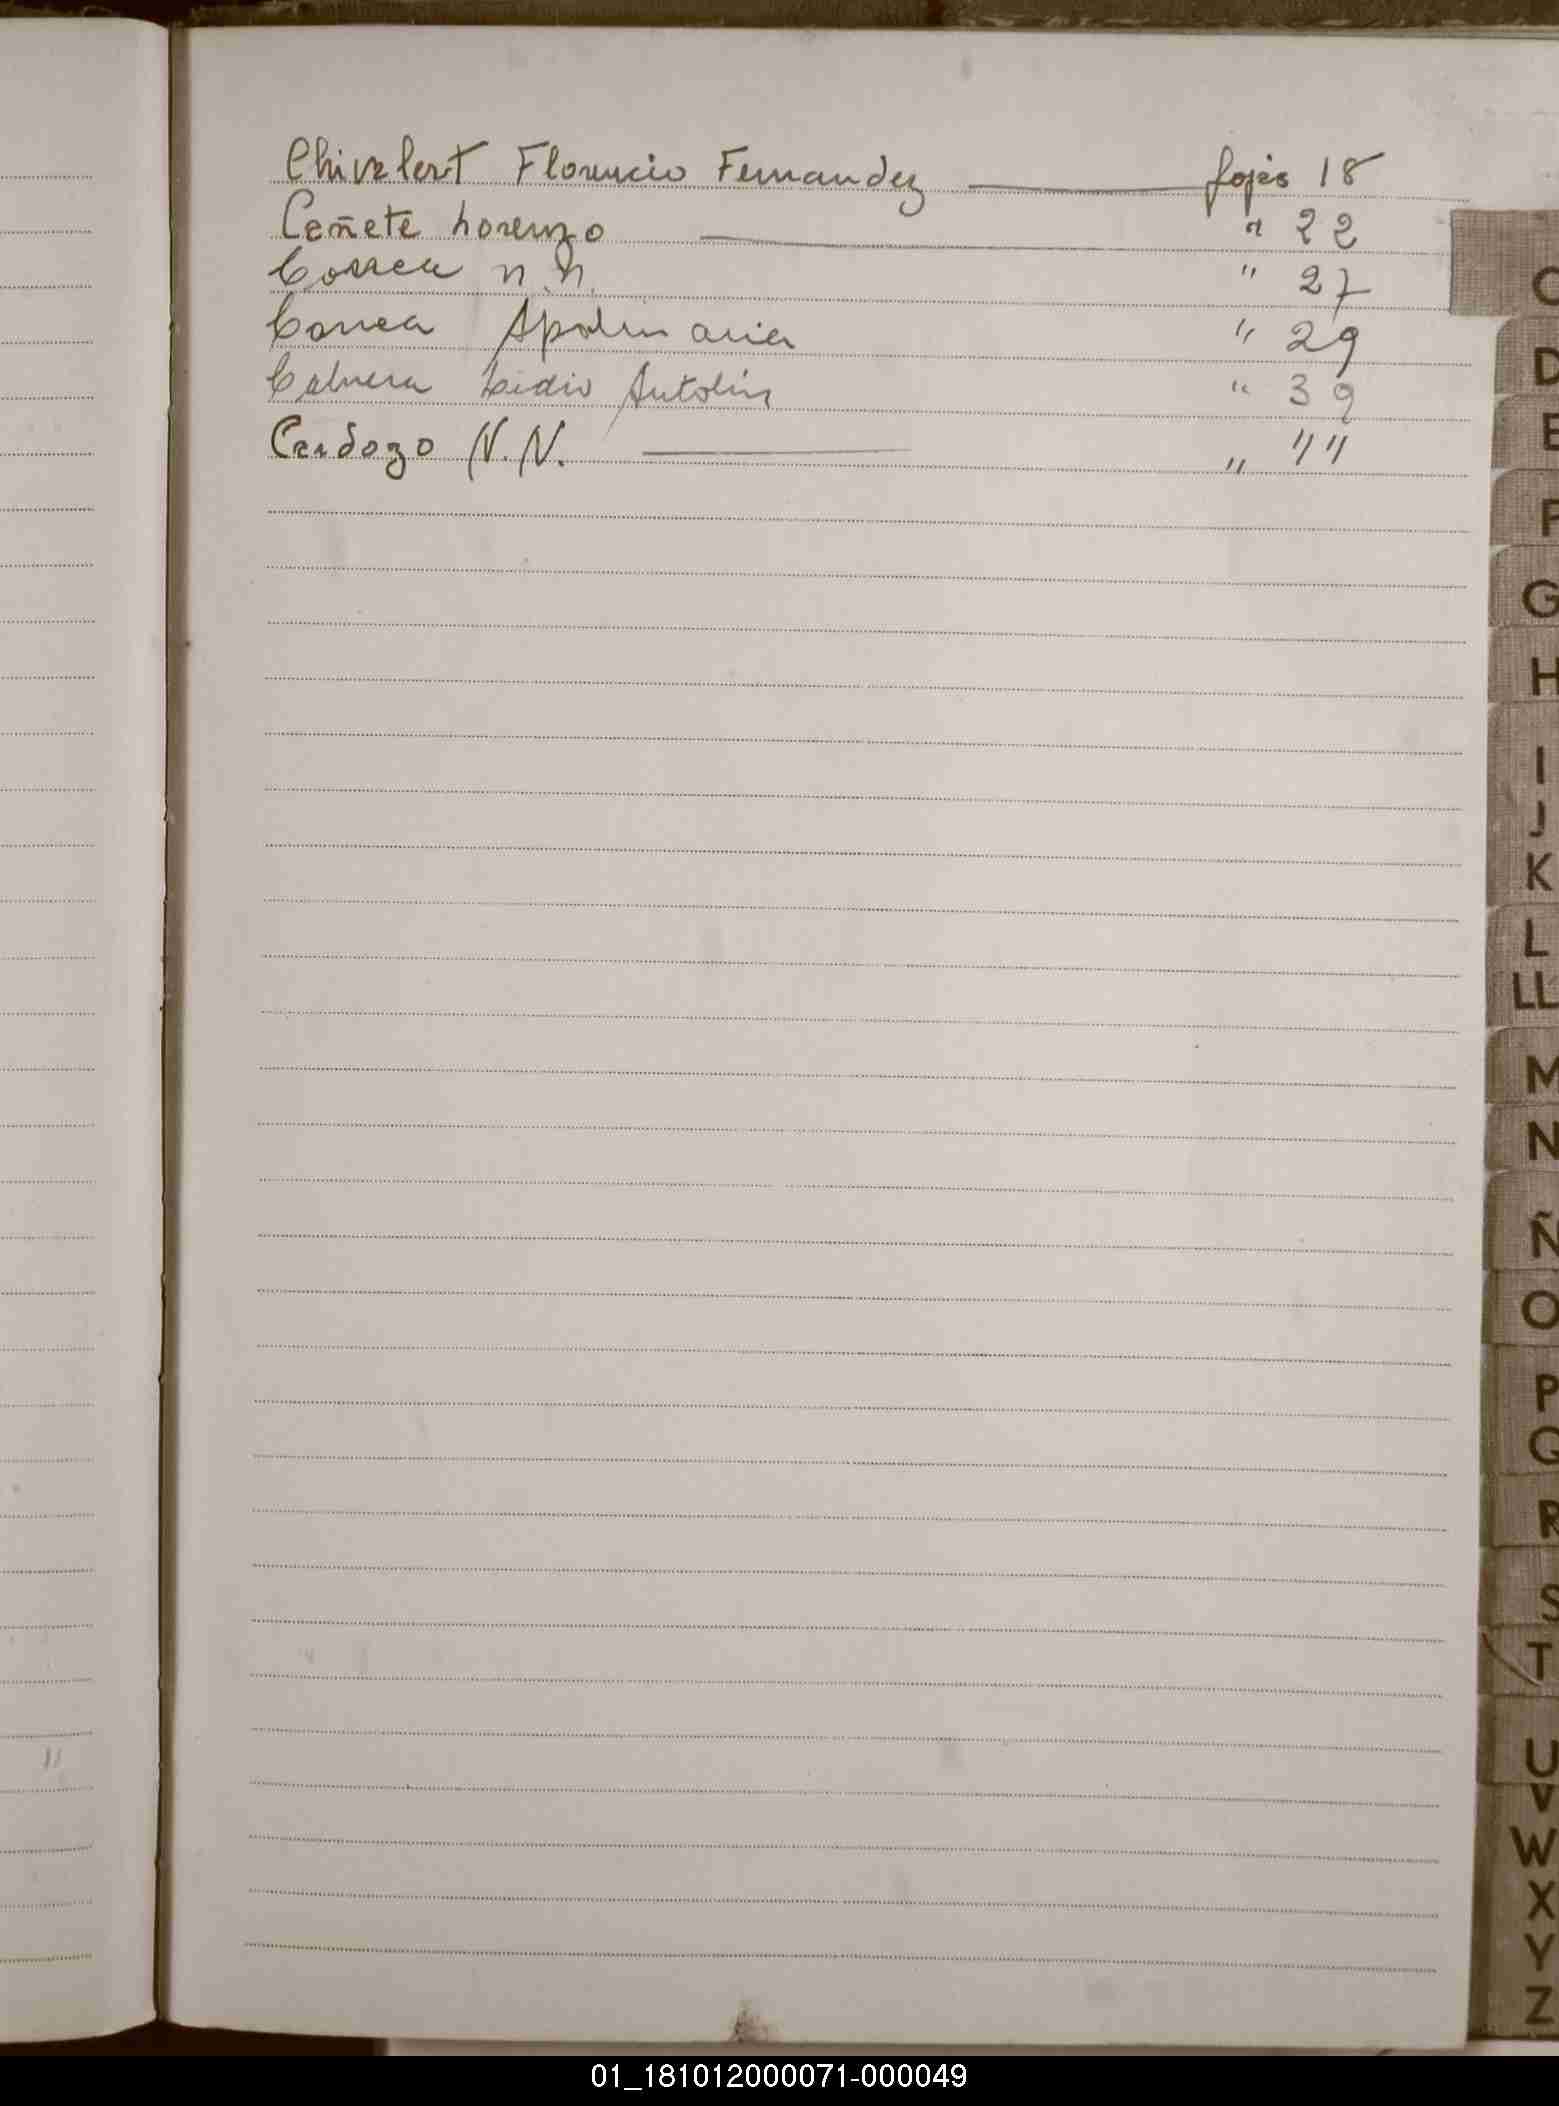 Chivalert Florencio Fernandez fojas 18
Cañete Lorenzo " 22
Correa n.n. " 27
Correa Apolinaria " 29
Cabrera Lidio Antolin " 39
Cardozo N.N. " 44
C
D
E
F
G
H
I
J
K
L
LL
M
N
Ñ
O
P
Q
R
S
T
U
V
W
X
Y
Z
01_181012000071-000049